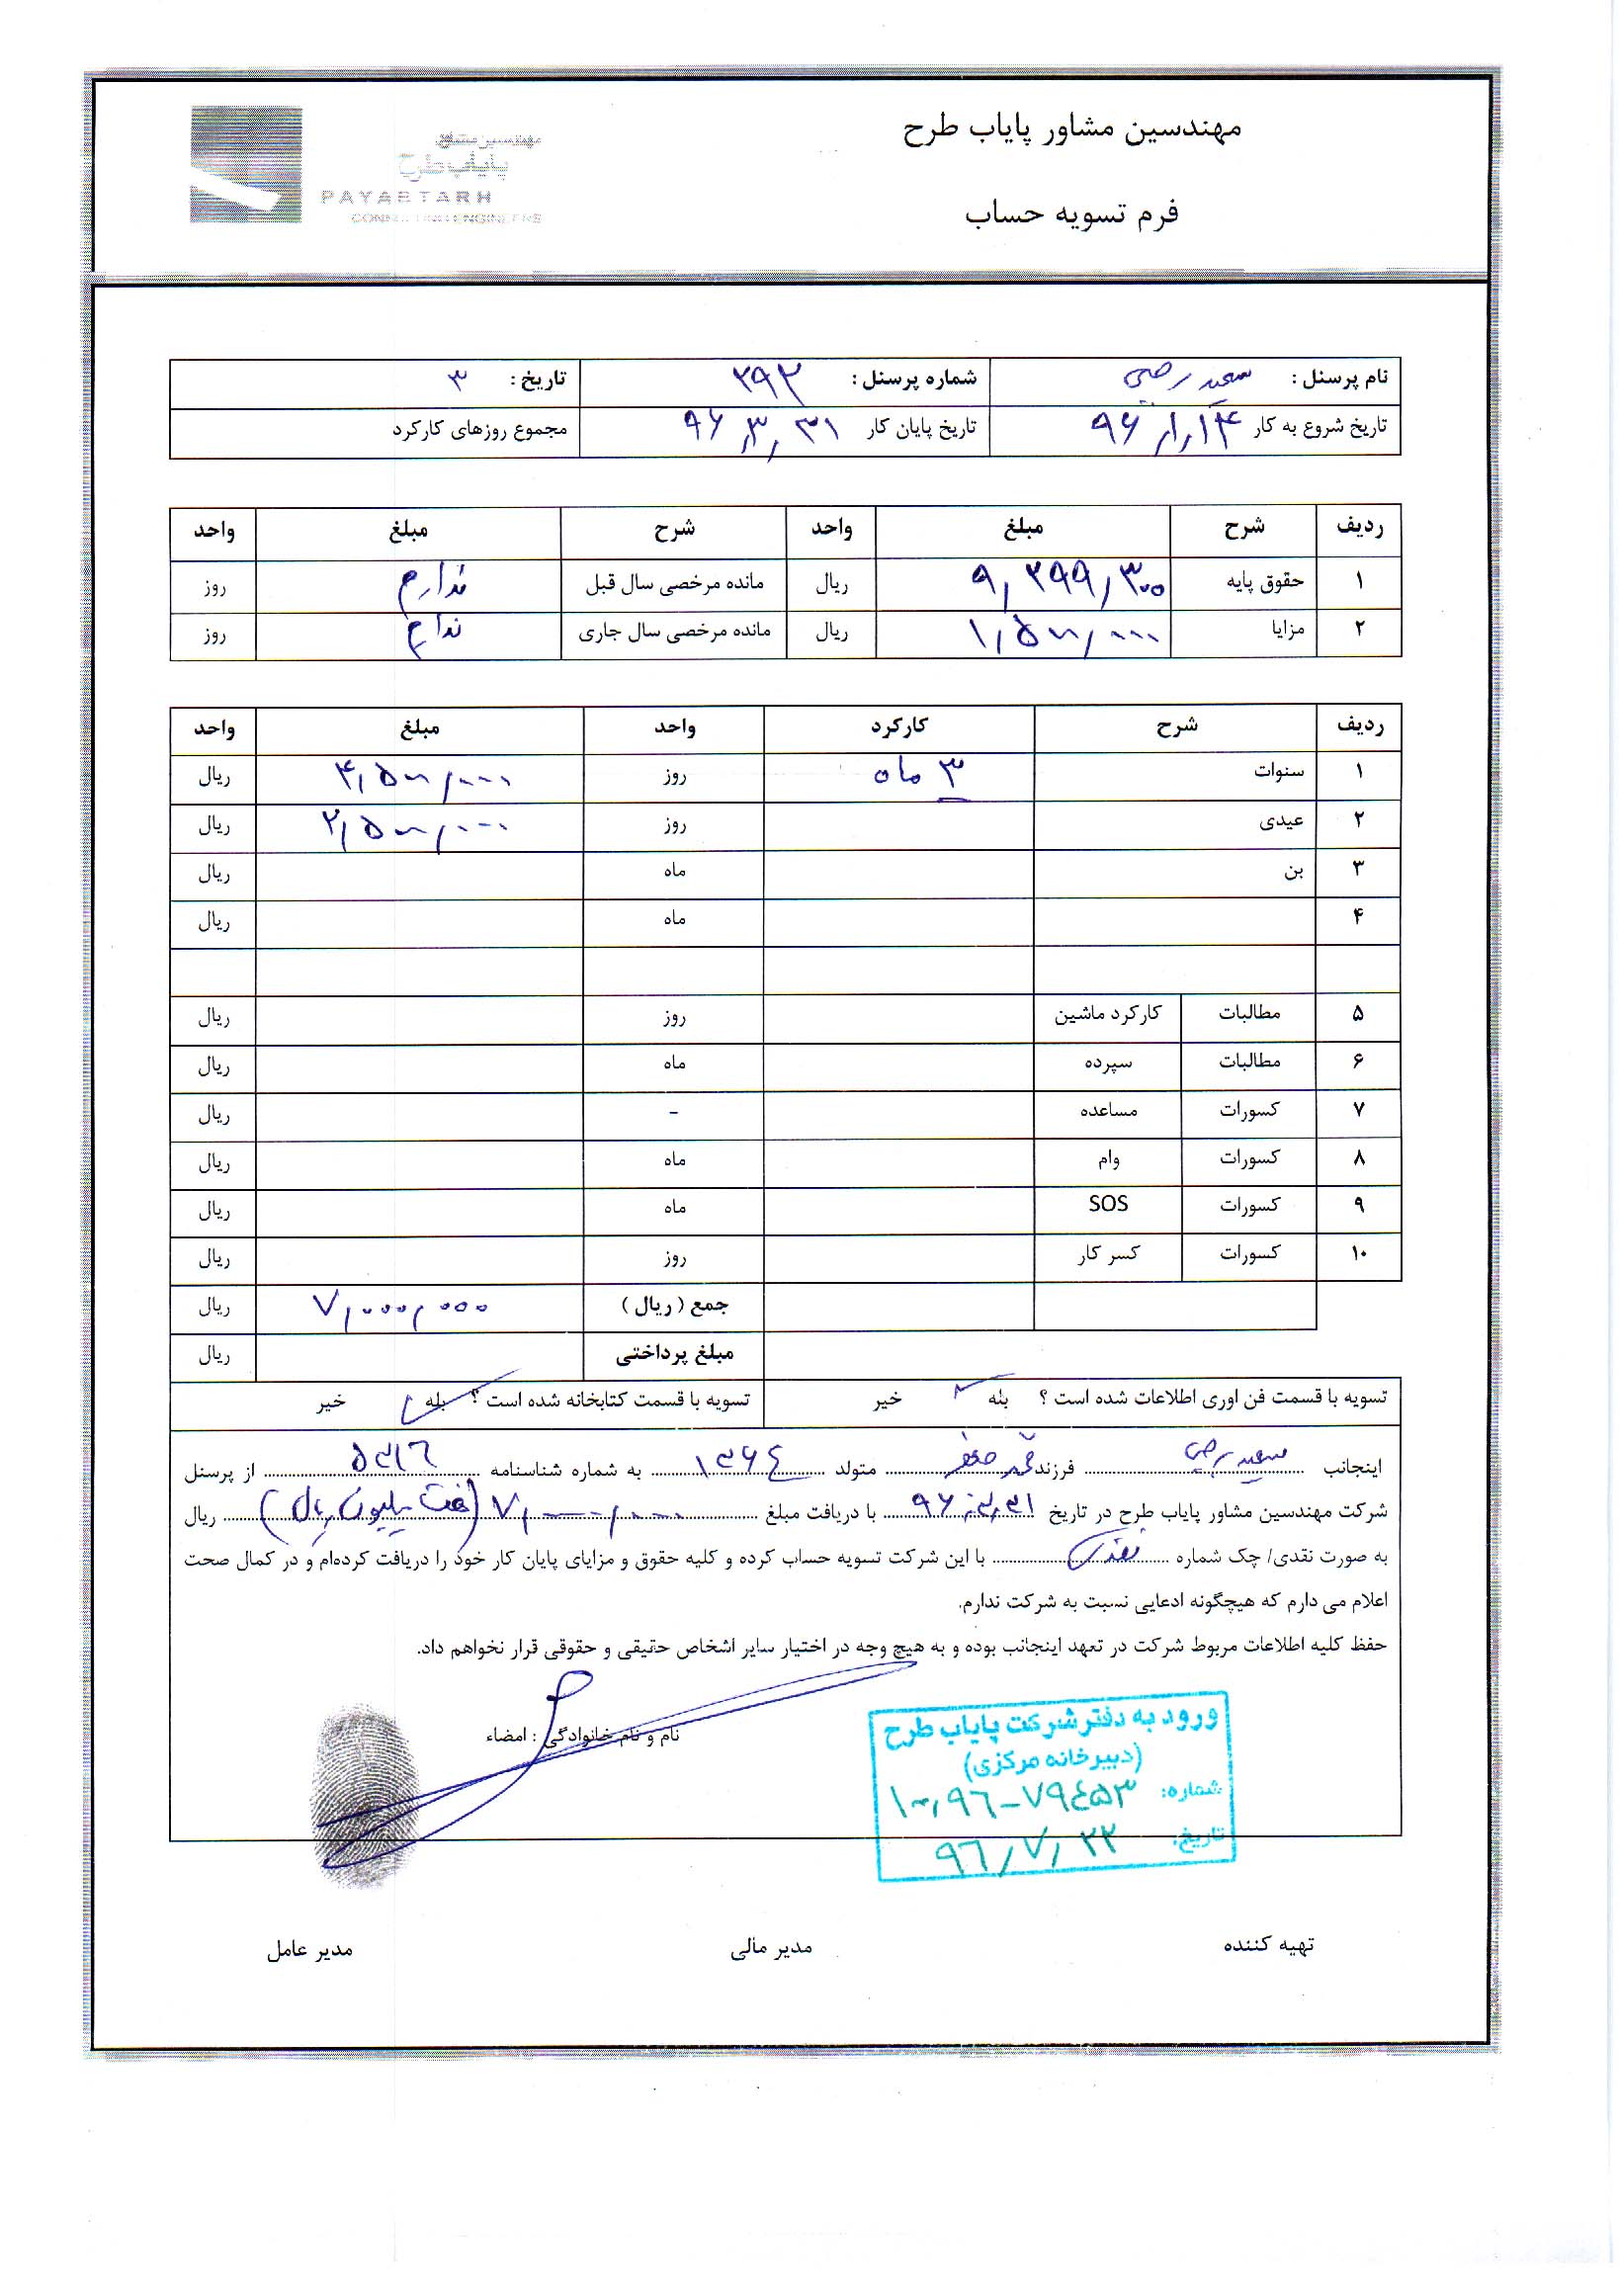 مهندسین مشاور پایاب طرح
فرم تسویه حساب
مهندسین مشاور
پایاب طرح
PAYABTARH
CONSULTING ENGINEERS
نام پرسنل : سعید رجبی شماره پرسنل : ۲۹۲ تاریخ : ۳
تاریخ شروع به کار ۹۶/۱/۱۴ تاریخ پایان کار ۹۶/۳/۳۱ مجموع روزهای کارکرد
ردیف شرح مبلغ واحد شرح مبلغ واحد
۱ حقوق پایه ۹,۲۹۹,۳۰۰ ریال مانده مرخصی سال قبل ندارم روز
۲ مزایا ۱,۵۰۰,۰۰۰ ریال مانده مرخصی سال جاری روز
ردیف شرح کارکرد واحد مبلغ واحد
۱ سنوات ۳ ماه روز ۴,۵۰۰,۰۰۰ ریال
۲ عیدی روز ۲,۵۰۰,۰۰۰ ریال
۳ بن ماه ریال
۴ ماه ریال
۵ مطالبات کارکرد ماشین روز ریال
۶ مطالبات سپرده ماه ریال
۷ کسورات مساعده - ریال
۸ کسورات وام ماه ریال
۹ کسورات SOS ماه ریال
۱۰ کسورات کسر کار روز ریال
جمع ( ریال ) ۷,۰۰۰,۰۰۰ ریال
مبلغ پرداختی ریال
تسویه با قسمت فن اوری اطلاعات شده است ؟ بله خیر تسویه با قسمت کتابخانه شده است ؟ بله خیر
اینجانب سعید رجبی فرزند محمد جعفر متولد ۱۳۶۴ به شماره شناسنامه از پرسنل
شرکت مهندسین مشاور پایاب طرح در تاریخ ۹۶/۳/۳۱ با دریافت مبلغ ۷,۰۰۰,۰۰۰ (هفت میلیون ریال) ریال
به صورت نقدی/ چک شماره نقدی با این شرکت تسویه حساب کرده و کلیه حقوق و مزایای پایان کار خود را دریافت کرده‌ام و در کمال صحت
اعلام می دارم که هیچگونه ادعایی نسبت به شرکت ندارم.
حفظ کلیه اطلاعات مربوط شرکت در تعهد اینجانب بوده و به هیچ وجه در اختیار سایر اشخاص حقیقی و حقوقی قرار نخواهم داد.
نام و نام خانوادگی : امضاء
ورود به دفتر شرکت پایاب طرح
(دبیرخانه مرکزی)
شماره: ۱۰۰,۹۶-۷۹۴۵۳
تاریخ: ۹۶/۷/۲۲
تهیه کننده مدیر مالی مدیر عامل